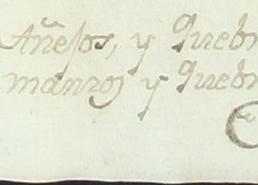 Añejos, y Quebr
manzos y Quebr